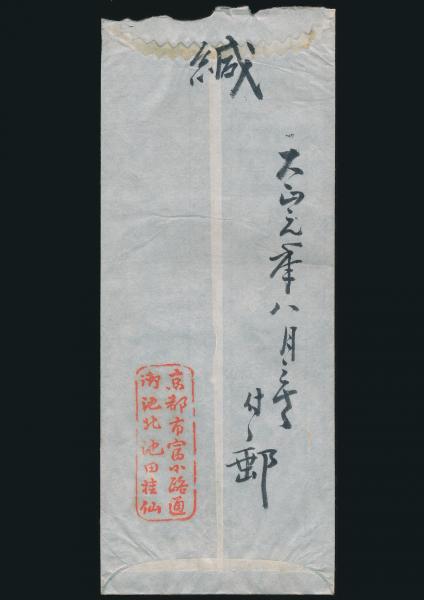 緘
大正元年八月三十
付郵
京都市富小路通
御池北池田桂仙